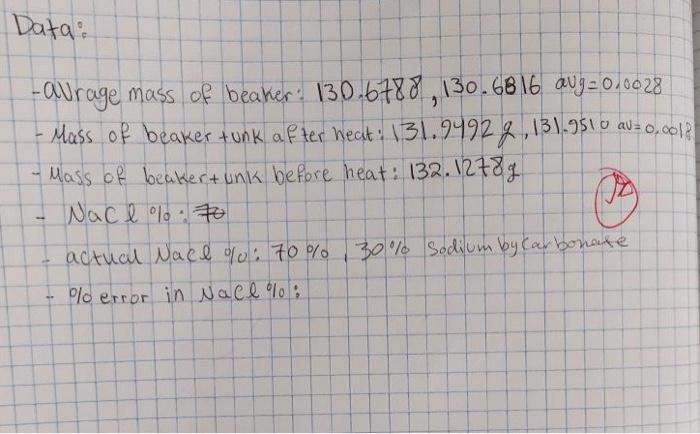 Data:
- avrage mass of beaker: 130.6788, 130.6816 avg=0.0028
- Mass of beaker + unk after heat: 131.9492 g, 131.9510 av=0.0018
- Mass of beaker + unk before heat: 132.1278g
- NaCl %: 70
- actual NaCl %: 70%, 30% Sodium bycarbonate
- % error in NaCl %: